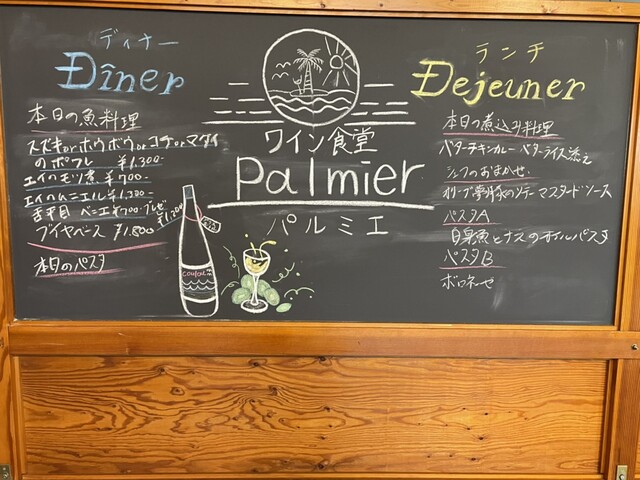 ディナー
Dîner
本日の魚料理
スズキorホウボウorコチorマダイ
のポワレ ¥1,300-
エイハモツ煮 ¥700-
エイハムニエル ¥1,300-
舌平目 ベニエ¥700-ブレゼ ¥1,200
ブイヤベース ¥1,800
本日のパスタ
ワイン食堂
Palmier
パルミエ
ランチ
Dejeuner
本日の煮込み料理
バターチキンカレー バターライス添え
シェフのおまかせ
ソテー マスタードソース
パスタA
白身魚とナスのオイルパスタ
パスタB
ボロネーゼ